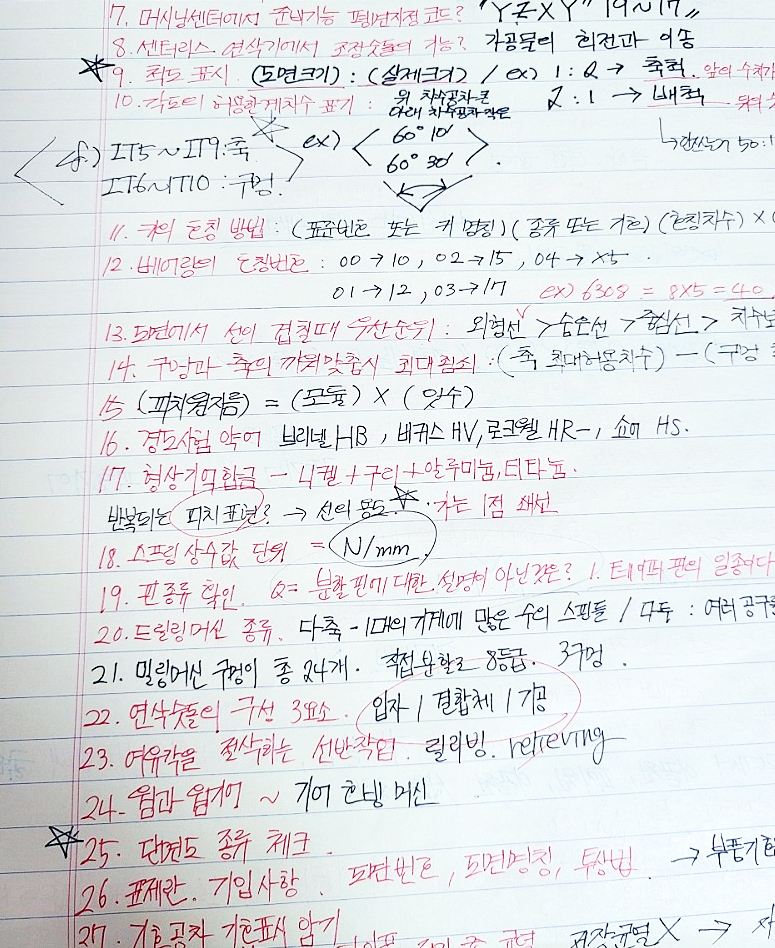 7. 머시닝센터에서 준비기능 평면지정코드? "YZXY" 19~17"
8. 센터리스 연삭기에서 조정숫돌의 기능? 가공물의 회전과 이송
☆ 9. 척도 표시. (도면크기) : (실제크기) / ex) 1:2 → 축척. 앞의 수치가
10. 각도의 허용한계치수 표기 : 위 치수공차 큰 2:1 → 배척
아래 치수공차 작은
↳ 50:1
IT5~IT9:축 ☆ ex) 60°10'
IT6~IT10 : 구멍. 60°30'
11. 키의 호칭 방법 : (표준번호 또는 키 명칭)(종류 또는 기호)(호칭치수) ×
12. 베어링의 호칭번호 : 00→10, 02→15, 04→×5.
01→12, 03→17 ex) 6308 = 8×5=40
13. 도면에서 선이 겹칠때 우선순위 : 외형선 > 숨은선 > 중심선 > 치수보
14. 구멍과 축의 끼워맞춤시 최대죔죄 : (축 최대허용치수) - (구멍
15 (피치원지름) = (모듈) × (잇수)
16. 경도시험 약어 브리넬 HB, 비커스 HV, 로크웰 HR-, 쇼어 HS.
17. 형상기억합금 - 니켈+구리+알루미늄, 티타늄.
반복되는 피치 표현? → 선의 용도. ☆ 가는 1점 쇄선
18. 스프링 상수값 단위 = N/mm.
19. 핀종류 확인. Q= 분할핀에 대한 설명이 아닌것은? 1. 테이퍼 핀의 일종이다
20. 드릴링머신 종류. 다축 - 1대의 기계에 많은 수의 스핀들 / 다두 : 여러공구를
21. 밀링머신 구멍이 총 24개. 직접분할로 8등급. 3구멍.
22. 연삭숫돌의 구성 3요소. 입자 / 결합체 / 기공
23. 여유각을 절삭하는 선반작업. 릴리빙. relieving
24. 웜과 웜기어 ~ 기어 호빙 머신
☆ 25. 단면도 종류 체크.
26. 표제란. 기입사항. 도면번호, 도면명칭, 투상법. → 부품기호
27. 기하공차 기호표시 암기